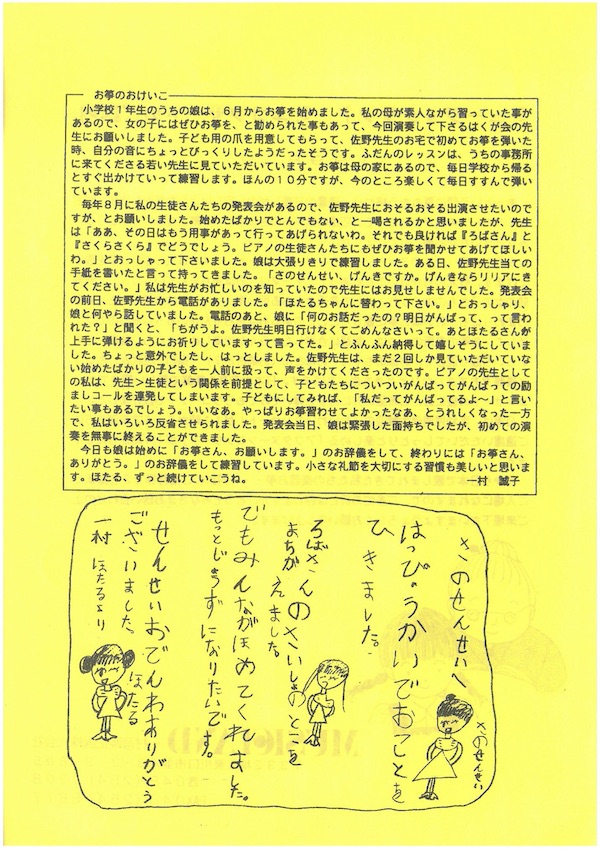 お箏のおけいこ
小学校1年生のうちの娘は、6月からお箏を始めました。私の母が素人ながら習っていた事が
あるので、女の子にはぜひお箏を、と勧められた事もあって、今回演奏して下さるはくが会の先
生にお願いしました。子ども用の爪を用意してもらって、佐野先生のお宅で初めてお箏を弾いた
時、自分の音にちょっとびっくりしたようだったそうです。ふだんのレッスンは、うちの事務所
に来てくださる若い先生に見ていただいています。お箏は母の家にあるので、毎日学校から帰る
とすぐ出かけていって練習します。ほんの10分ですが、今のところ楽しくて毎日すすんで弾い
ています。
毎年8月に私の生徒さんたちの発表会があるので、佐野先生におそるおそる出演させたいので
すが、とお願いしました。始めたばかりでとんでもない、と一喝されるかと思いましたが、先生
は「ああ、その日はもう用事があって行ってあげられないわ。それでも良ければ『ろばさん』と
『さくらさくら』でどうでしょう。ピアノの生徒さんたちにもぜひお箏を聞かせてあげてほしい
わ。」とおっしゃって下さいました。娘は大張りきりで練習しました。ある日、佐野先生当ての
手紙を書いたと言って持ってきました。「さのせんせい、げんきですか。げんきならリリアにき
てください。」私は先生がお忙しいのを知っていたので先生にはお見せしませんでした。発表会
の前日、佐野先生から電話がありました。「ほたるちゃんに替わって下さい。」とおっしゃり、
娘と何やら話していました。電話のあと、娘に「何のお話だったの?明日がんばって、って言わ
れた?」と聞くと、「ちがうよ。佐野先生明日行けなくてごめんなさいって。あとほたるさんが
上手に弾けるようにお祈りしていますって言ってた。」とふんふん納得して嬉しそうにしていま
した。ちょっと意外でしたし、はっとしました。佐野先生は、まだ2回しか見ていただいていな
い始めたばかりの子どもを一人前に扱って、声をかけてくださったのです。ピアノの先生として
の私は、先生＞生徒という関係を前提として、子どもたちについついがんばってがんばっての励
ましコールを連発してしまいます。子どもにしてみれば、「私だってがんばってるよ〜」と言い
たい事もあるでしょう。いいなあ。やっぱりお箏習わせてよかったなあ、とうれしくなった一方
で、私はいろいろ反省させられました。発表会当日、娘は緊張した面持ちでしたが、初めての演
奏を無事に終えることができました。
今日も娘は始めに「お箏さん、お願いします。」のお辞儀をして、終わりには「お箏さん、
ありがとう。」のお辞儀をして練習しています。小さな礼節を大切にする習慣も美しいと思いま
す。ほたる、ずっと続けていこうね。 一村 誠子
さのせんせい
さのせんせいへ
はっぴょうかいでおことを
ひきました。
ろばさんのさいしょのところを
まちがえました。
でもみんながほめてくれました。
もっとじょうずになりたいです。
せんせいおでんわありがとう
ございました。
ほたる
一村 ほたるより